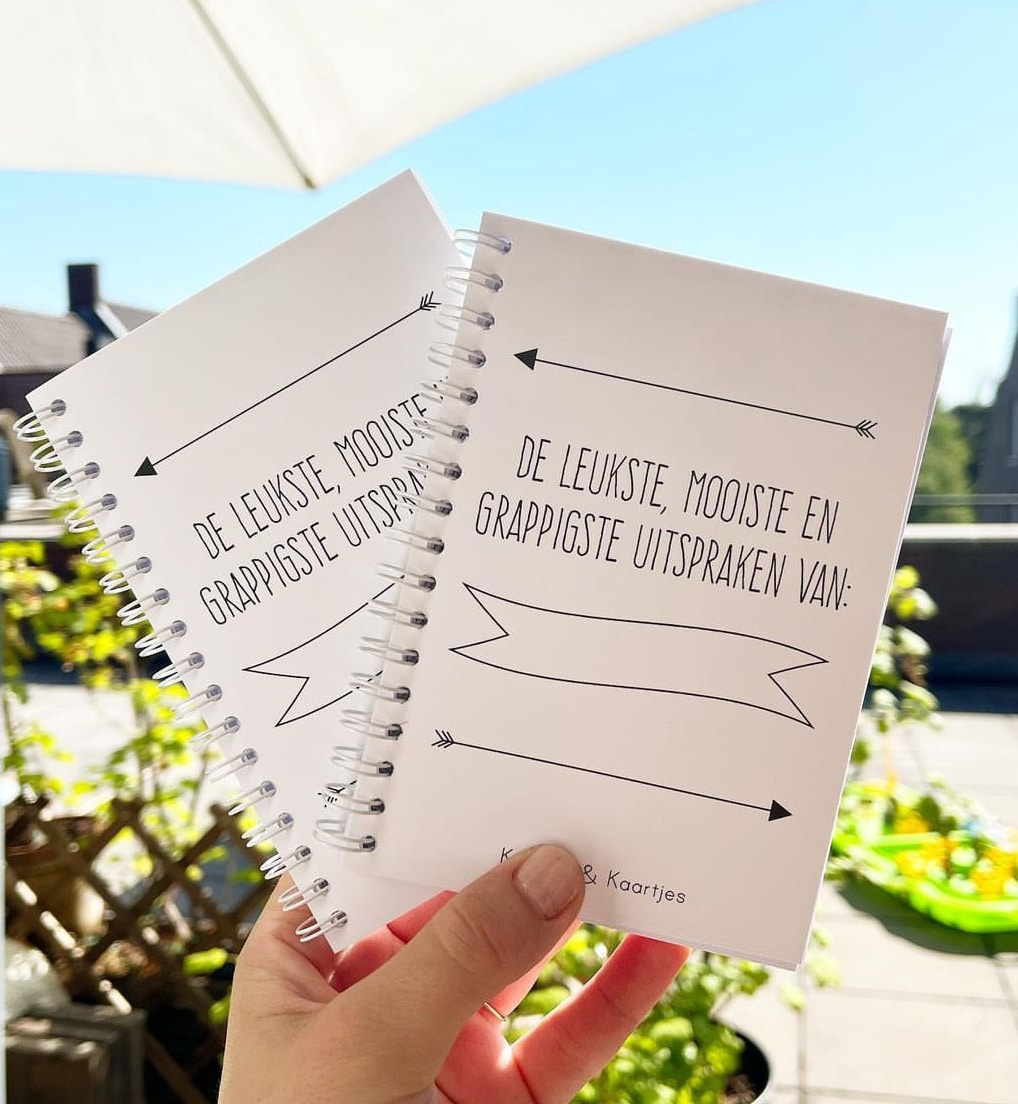 DE LEUKSTE, MOOISTE
GRAPPIGSTE
DE LEUKSTE, MOOISTE EN
GRAPPIGSTE UITSPRAKEN VAN:
& Kaartjes